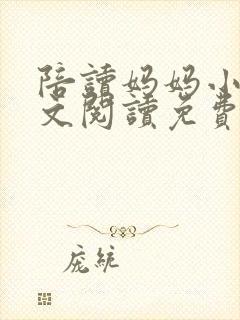 陪讀妈妈小
文閱讀免費
庞統